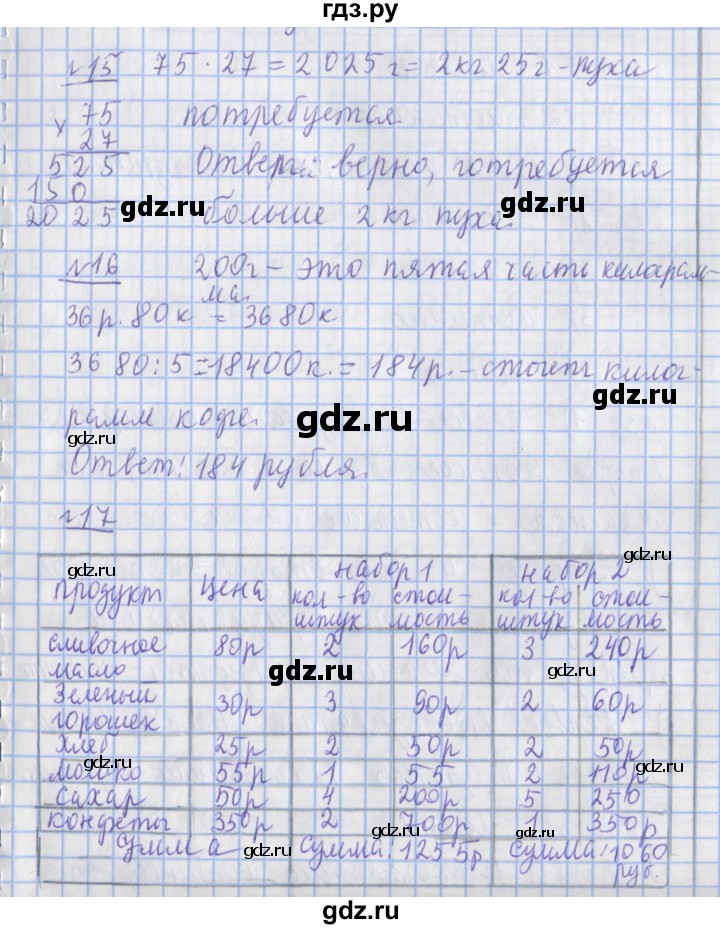 гдз.ру
№15 75 · 27 = 2025 г = 2 кг 25 г - пуха
× 75 потребуется.
27
525 Ответ: верно, потребуется
150
2025 больше 2 кг пуха.
gdz.ru
№16 200 г – это пятая часть килограм-
ма.
36 р. 80 к = 3680 к
gdz.ru
36 80 : 5 = 18400 к. = 184 р. – стоит килог-
gdz.ru
рамм кофе.
gdz.ru
gdz.ru
Ответ: 184 рубля.
gdz.ru
№17
gdz.ru
продукт цена набор 1 набор 2
кол-во штук стои-мость кол-во штук стои-мость
gdz.ru
сливочное масло 80р 2 160р 3 240р
gdz.ru
Зеленый горошек 30р 3 90р 2 60р
gdz.ru
хлеб 25р 2 50р 2 50р
молоко 55р 1 55 2 110р
gdz.ru
gdz.ru
сахар 50р 4 200р 5 250
конфеты 350р 2 700р 1 350р
Сумма Сумма: 1255р Сумма: 1060 руб.
gdz.ru
gdz.ru
gdz.ru